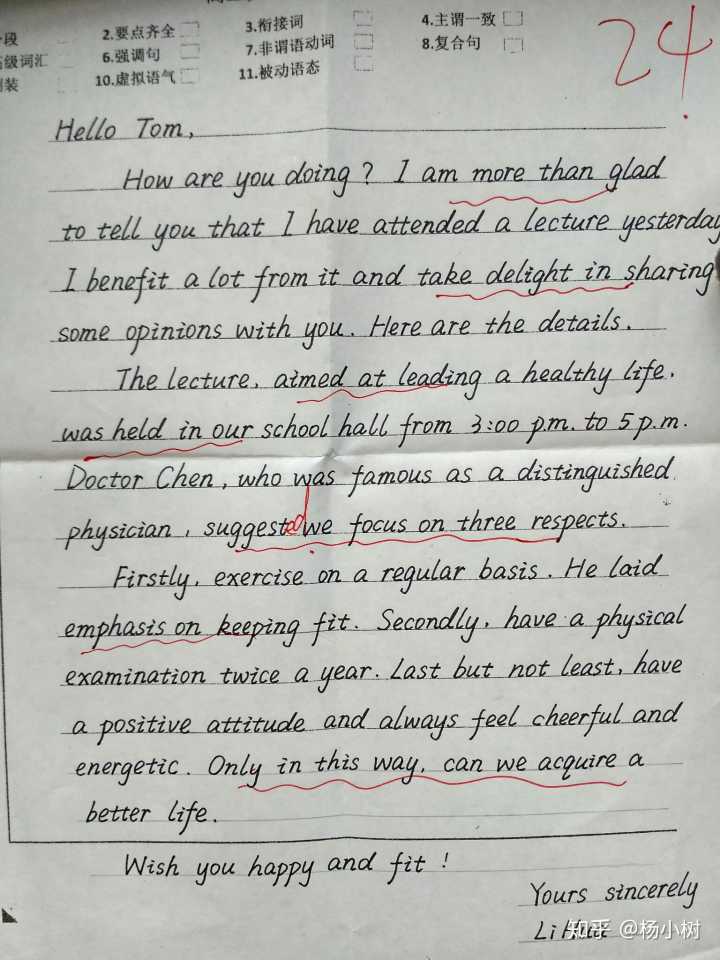 段 2.要点齐全 3.衔接词 4.主谓一致
高级词汇 6.强调句 7.非谓语动词 8.复合句
装 10.虚拟语气 11.被动语态
24
Hello Tom,
How are you doing? I am more than glad
to tell you that I have attended a lecture yesterday
I benefit a lot from it and take delight in sharing
some opinions with you. Here are the details.
The lecture, aimed at leading a healthy life,
was held in our school hall from 3:00 p.m. to 5 p.m.
Doctor Chen, who was famous as a distinguished
physician, suggested we focus on three respects.
Firstly, exercise on a regular basis. He laid
emphasis on keeping fit. Secondly, have a physical
examination twice a year. Last but not least, have
a positive attitude and always feel cheerful and
energetic. Only in this way, can we acquire a
better life.
Wish you happy and fit!
Yours sincerely
Li Hua
知乎 @杨小树